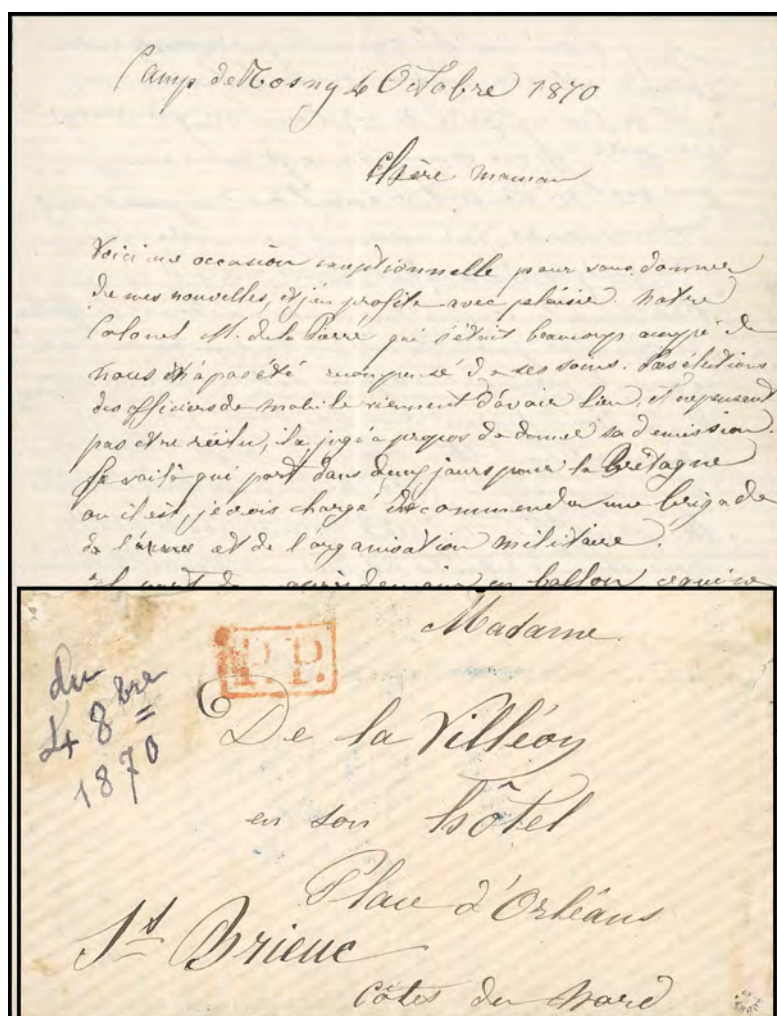 Camp de Rosny 4 Octobre 1870
Chère maman
Voici une occasion exceptionnelle pour vous donner
de mes nouvelles, et j'en profite avec plaisir. Notre
Colonel M. de la qui s'était beaucoup occupé de
nous n'a pas été récompensé de ses soins. Les élections
des officiers de mobile viennent d'avoir lieu, et ne pensant
pas etre réélu, il a jugé a propos de donner sa demission.
Le voilà qui part dans deux jours pour la Bretagne
ou il est, je crois chargé de commander une brigade
de l'armée et de l'organisation militaire.
il part demain en ballon
P.P.
du
4 8bre
1870
Madame
De la Villéon
en son hôtel
Place d'Orléans
St Brieuc
Côtes du Nord